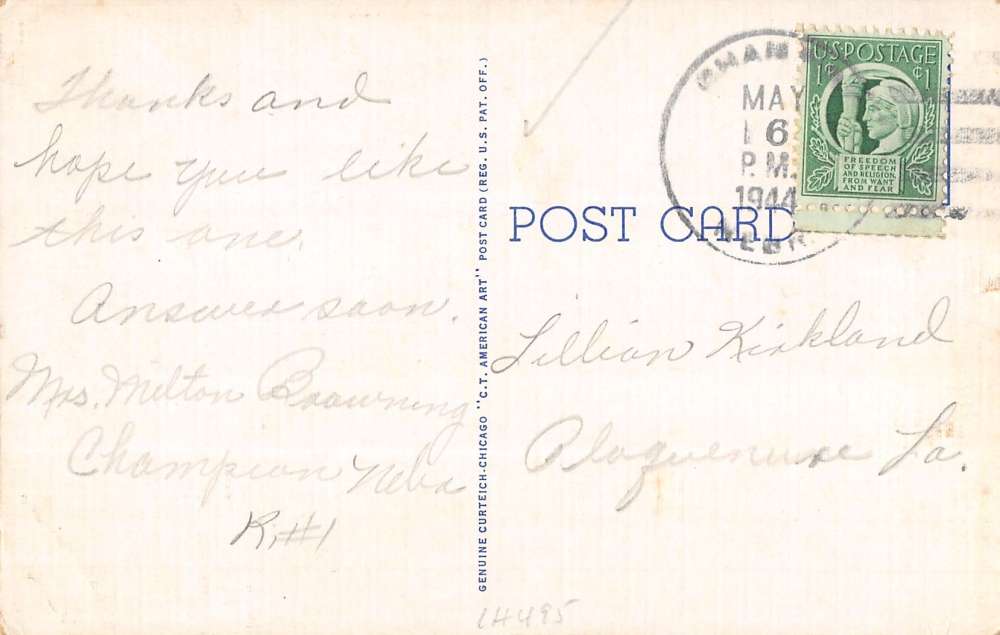 Thanks and
hope you like
this one.
Answer soon.
Mrs. Milton Browning
Champion Nebr
R.#1
GENUINE CURTEICH-CHICAGO "C.T. AMERICAN ART" POST CARD (REG. U.S. PAT. OFF.)
POST CARD
MAY
16
P.M.
1944
NEBR.
U.S. POSTAGE
1¢ ¢1
FREEDOM
OF SPEECH
AND RELIGION,
FROM WANT
AND FEAR
Lillian Kirkland
La.
1H495